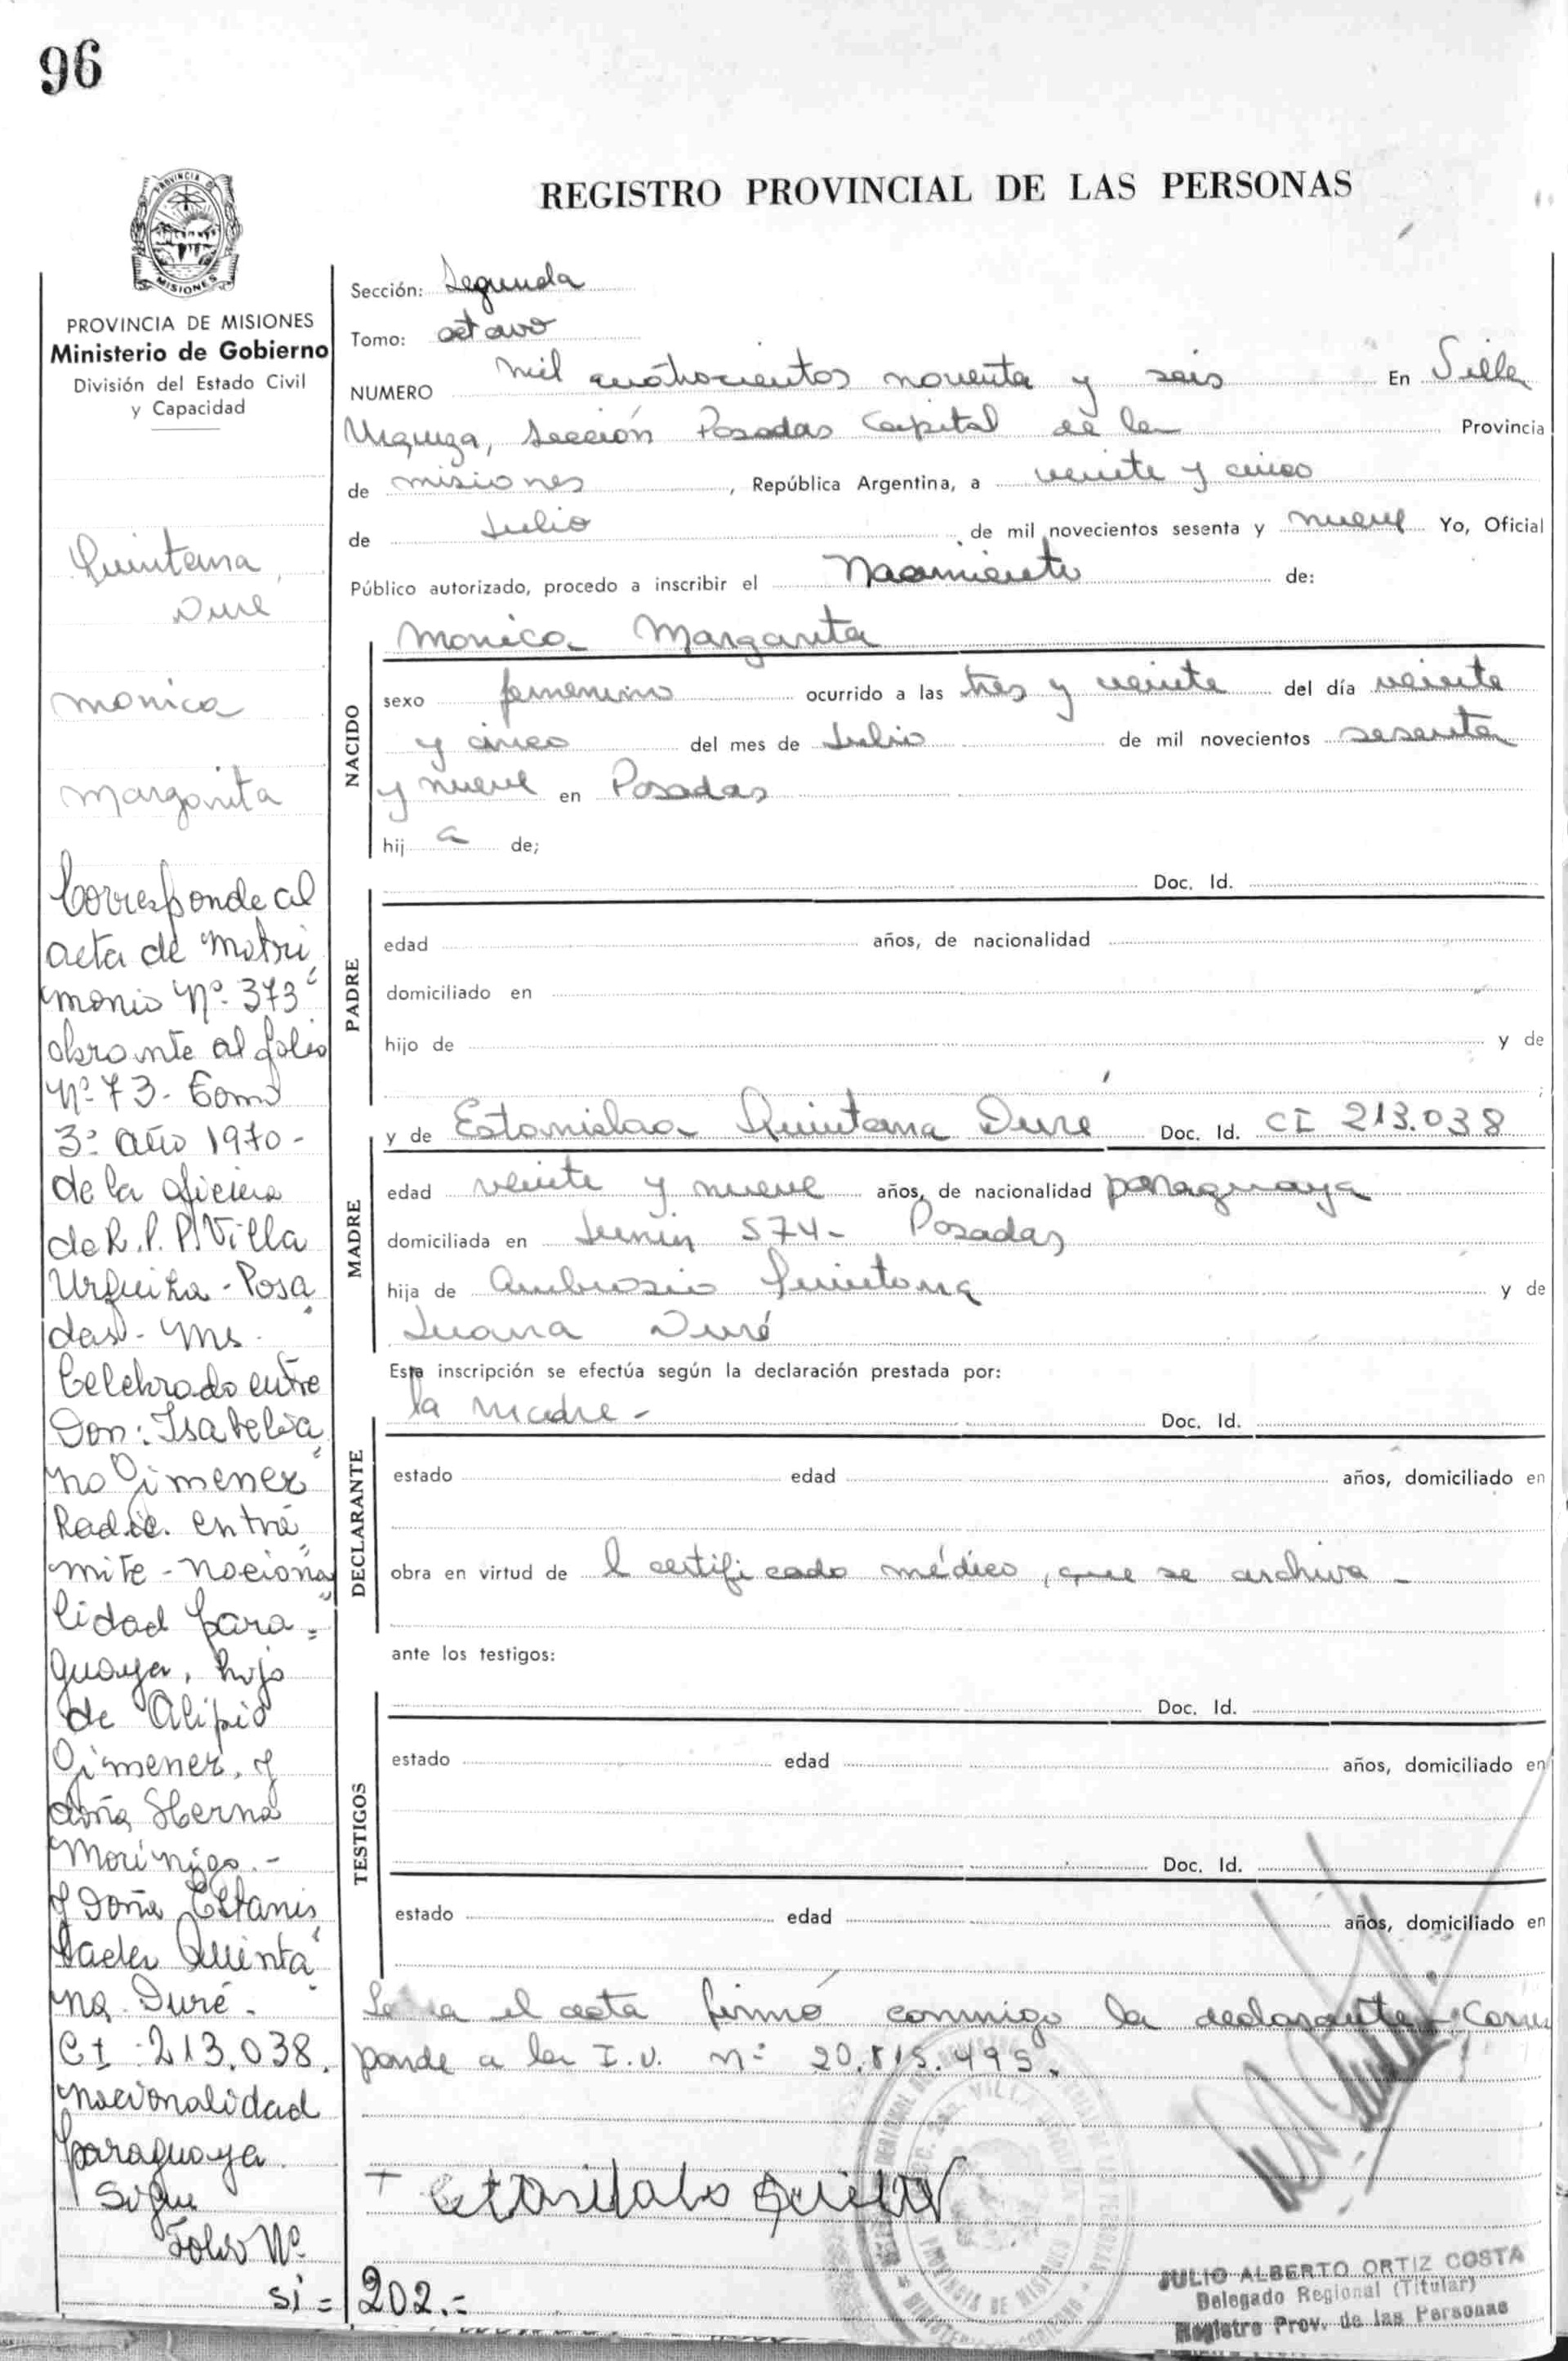 96
PROVINCIA DE
MISIONES
PROVINCIA DE MISIONES
Ministerio de Gobierno
División del Estado Civil
y Capacidad
Quintana
Duré
Monica
Margarita
Corresponde al
acta de Matri
monio Nº 373
obrante al folio
Nº 73 - Tomo
3º año 1970 -
de la oficina
de R. P. P. Villa
Urquiza - Posa
das - Ms.
Celebrado entre
Don: Isabelia
no Gimenez
Radic. en trá
mite - naciona
lidad para=
guaya, hijo
de Alipio
Gimenez, y
doña
Morínigo.-
y Doña Estanis
Quinta
na Duré.
CI 213.038.
nacionalidad
paraguaya
Sigue
Folio Nº
202.-
REGISTRO PROVINCIAL DE LAS PERSONAS
Sección: Segunda
Tomo: octavo
NUMERO mil cuatrocientos noventa y seis En Villa
Urquiza, Sección Posadas Capital de la Provincia
de misiones, República Argentina, a veinte y cinco
de Julio de mil novecientos sesenta y nueve Yo, Oficial
Público autorizado, procedo a inscribir el Nacimiento de:
NACIDO
Monica Margarita
sexo femenino ocurrido a las tres y veinte del día veinte
y cinco del mes de Julio de mil novecientos sesenta
y nueve en Posadas
hij a de;
PADRE
Doc. Id.
edad años, de nacionalidad
domiciliado en
hijo de y de
MADRE
y de Estanislaa Quintana Duré Doc. Id. CI 213.038
edad veinte y nueve años, de nacionalidad paraguaya
domiciliada en Junin 574- Posadas
hija de Ambrosio Quintana y de
Juana Duré
Esta inscripción se efectúa según la declaración prestada por:
DECLARANTE
la madre - Doc. Id.
estado edad años, domiciliado en
obra en virtud de l certificado médico, que se archiva -
ante los testigos:
TESTIGOS
Doc. Id.
estado edad años, domiciliado en
Doc. Id.
estado edad años, domiciliado en
el acta firmó conmigo la declarante - Corres
ponde a la I.U. nº 20.815.495.
JULIO ALBERTO ORTIZ COSTA
Delegado Regional (Titular)
Registro Prov. de las Personas